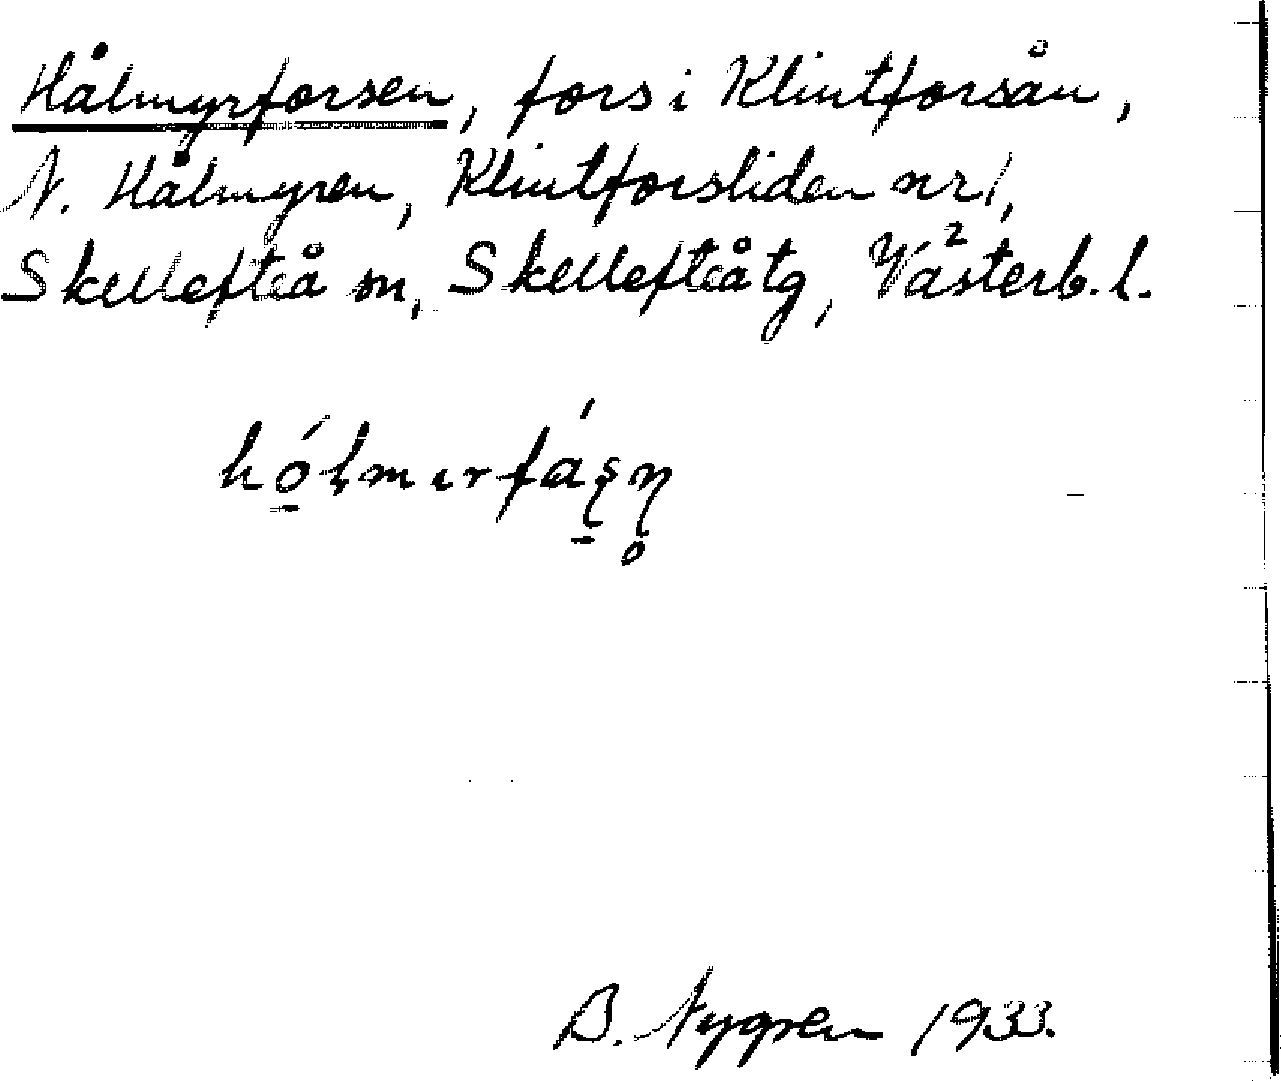 Hålmyrforsen, fors i Klintforsån,
N. Hålmyren, Klintforsliden nr 1,
Skellefteå sn, Skellefteå tg, Västerb. l.
hǫ́lmırfá̱ʂn̥
B. Nygren 1933.